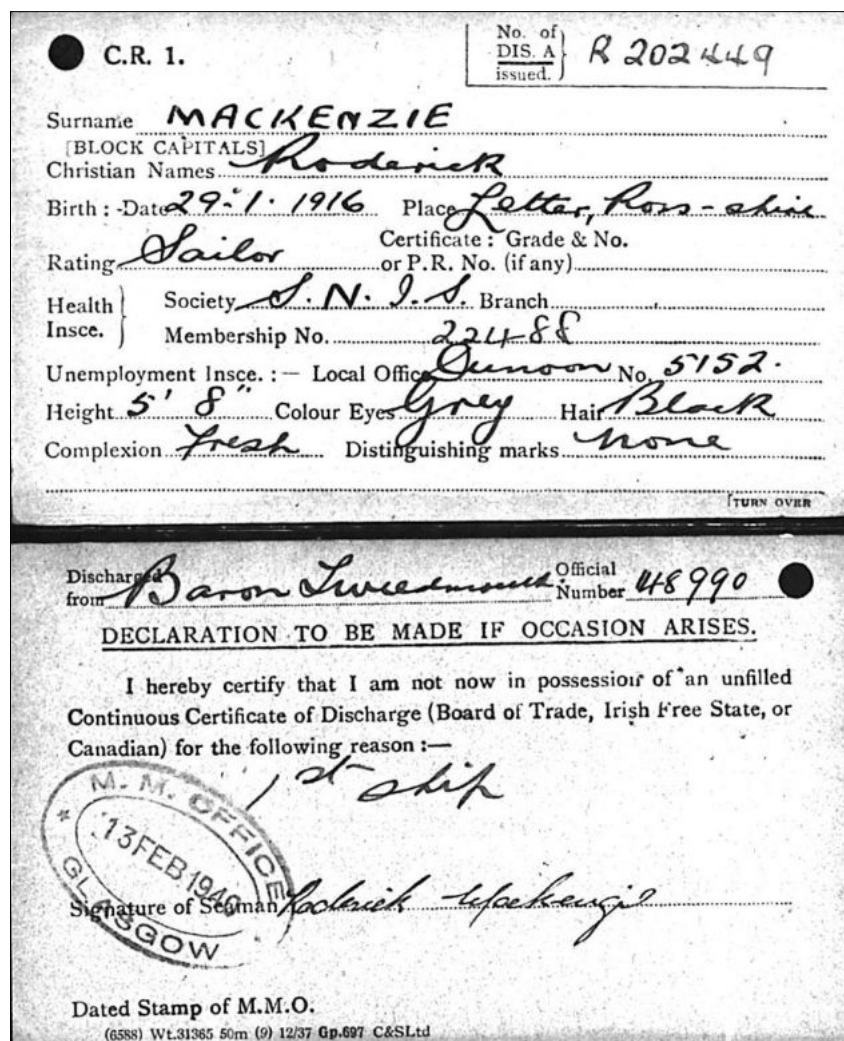 C.R. 1.
No. of
DIS. A
issued. R 202449
Surname MACKENZIE
[BLOCK CAPITALS]
Christian Names Roderick
Birth :-Date 29.1.1916 Place Letter, Ross-shire
Certificate : Grade & No.
Rating Sailor or P.R. No. (if any)
Health Insce. Society S.N.I.S. Branch
Membership No. 22488
Unemployment Insce. :— Local Office Dunoon No. 5152.
Height 5' 8" Colour Eyes Grey Hair Black
Complexion Fresh Distinguishing marks None
[TURN OVER
Discharged from Baron Tweedmouth. Official Number 148990
DECLARATION TO BE MADE IF OCCASION ARISES.
I hereby certify that I am not now in possession of an unfilled
Continuous Certificate of Discharge (Board of Trade, Irish Free State, or
Canadian) for the following reason :—
1st ship
M. M. OFFICE
13 FEB 1940
GLASGOW
Signature of Seaman Roderick Mackenzie
Dated Stamp of M.M.O.
(6588) Wt.31365 50m (9) 12/37 Gp.697 C&SLtd